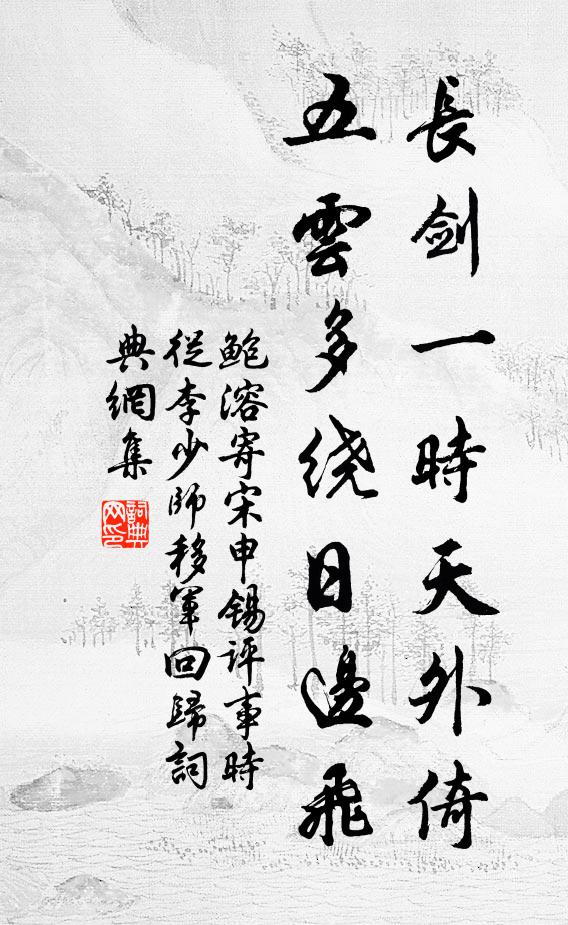 長剑一時天外倚
五雲多绕日邊飛
鲍溶寄宋申锡评事時
從李少師移軍回歸詞
典網集
詞典
网印